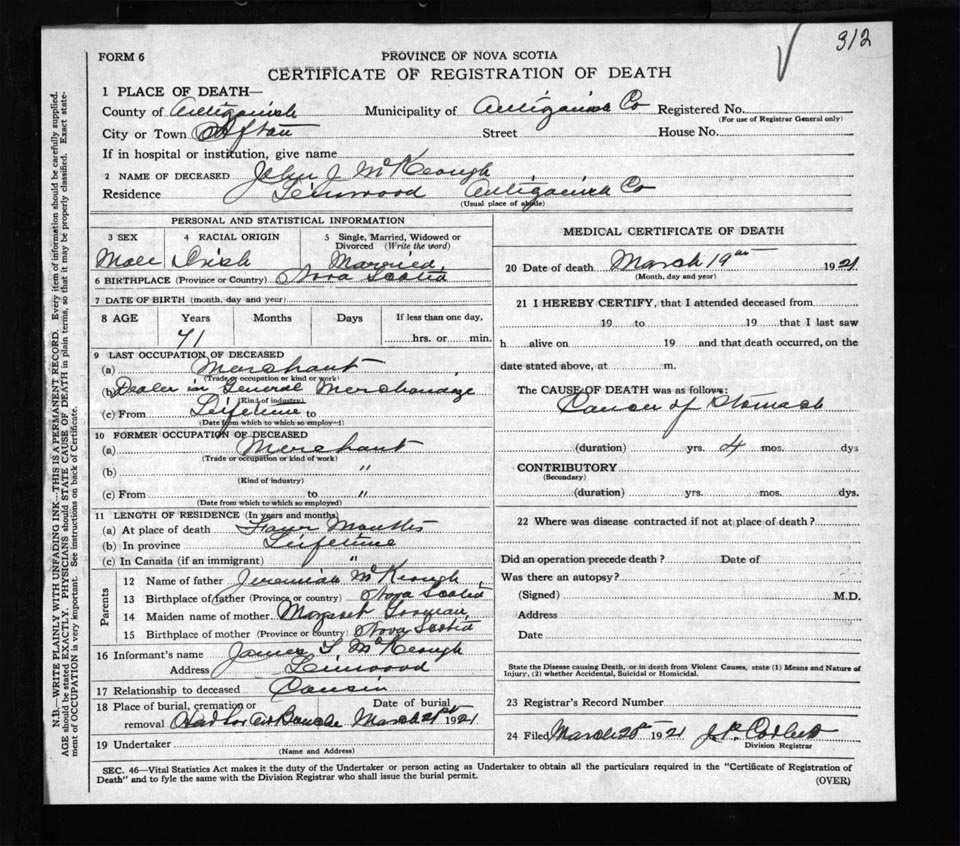 312
FORM 6
PROVINCE OF NOVA SCOTIA
CERTIFICATE OF REGISTRATION OF DEATH
1 PLACE OF DEATH—
County of Antigonish Municipality of Antigonish Co Registered No.
(For use of Registrar General only)
City or Town Afton Street House No.
If in hospital or institution, give name
2 NAME OF DECEASED John J McKeough
Residence Linwood Antigonish Co
(Usual place of abode)
PERSONAL AND STATISTICAL INFORMATION
3 SEX 4 RACIAL ORIGIN 5 Single, Married, Widowed or Divorced (Write the word)
Male Irish Married
6 BIRTHPLACE (Province or Country) Nova Scotia
7 DATE OF BIRTH (month, day and year)
8 AGE Years Months Days If less than one day,
71 hrs. or min.
9 LAST OCCUPATION OF DECEASED
(a) Merchant
(Trade or occupation or kind of work)
(b) Dealer in General Merchandize
(Kind of industry)
(c) From Lifetime to
(Date from which to which so employed)
10 FORMER OCCUPATION OF DECEASED
(a) Merchant
(Trade or occupation or kind of work)
(b) "
(Kind of industry)
(c) From to "
(Date from which to which so employed)
11 LENGTH OF RESIDENCE (In years and months)
(a) At place of death Four Months
(b) In province Lifetime
(c) In Canada (if an immigrant) "
Parents
12 Name of father Jeremiah McKeough
13 Birthplace of father (Province or country) Nova Scotia
14 Maiden name of mother Margaret Gorman
15 Birthplace of mother (Province or country) Nova Scotia
16 Informant's name James McKeough
Address Linwood
17 Relationship to deceased Cousin
18 Place of burial, cremation or removal Date of burial
March 21st 1921
19 Undertaker
(Name and Address)
MEDICAL CERTIFICATE OF DEATH
20 Date of death March 19th 1921
(Month, day and year)
21 I HEREBY CERTIFY, that I attended deceased from
19 to 19 that I last saw
h alive on 19 and that death occurred, on the
date stated above, at m.
The CAUSE OF DEATH was as follows:
Cancer of Stomach
(duration) yrs. 4 mos. dys
CONTRIBUTORY
(Secondary)
(duration) yrs. mos. dys.
22 Where was disease contracted if not at place of death?
Did an operation precede death? Date of
Was there an autopsy?
(Signed) M.D.
Address
Date
State the Disease causing Death, or in death from Violent Causes, state (1) Means and Nature of
Injury, (2) whether Accidental, Suicidal or Homicidal.
23 Registrar's Record Number
24 Filed March 20th 1921 J.P. Corbett
Division Registrar
SEC. 46—Vital Statistics Act makes it the duty of the Undertaker or person acting as Undertaker to obtain all the particulars required in the "Certificate of Registration of
Death" and to fyle the same with the Division Registrar who shall issue the burial permit.
(OVER)
N.B.—WRITE PLAINLY WITH UNFADING INK—THIS IS A PERMANENT RECORD. Every item of information should be carefully supplied.
AGE should be stated EXACTLY. PHYSICIANS should STATE CAUSE OF DEATH in plain terms, so that it may be properly classified. Exact state-
ment of OCCUPATION is very important. See instructions on back of Certificate.